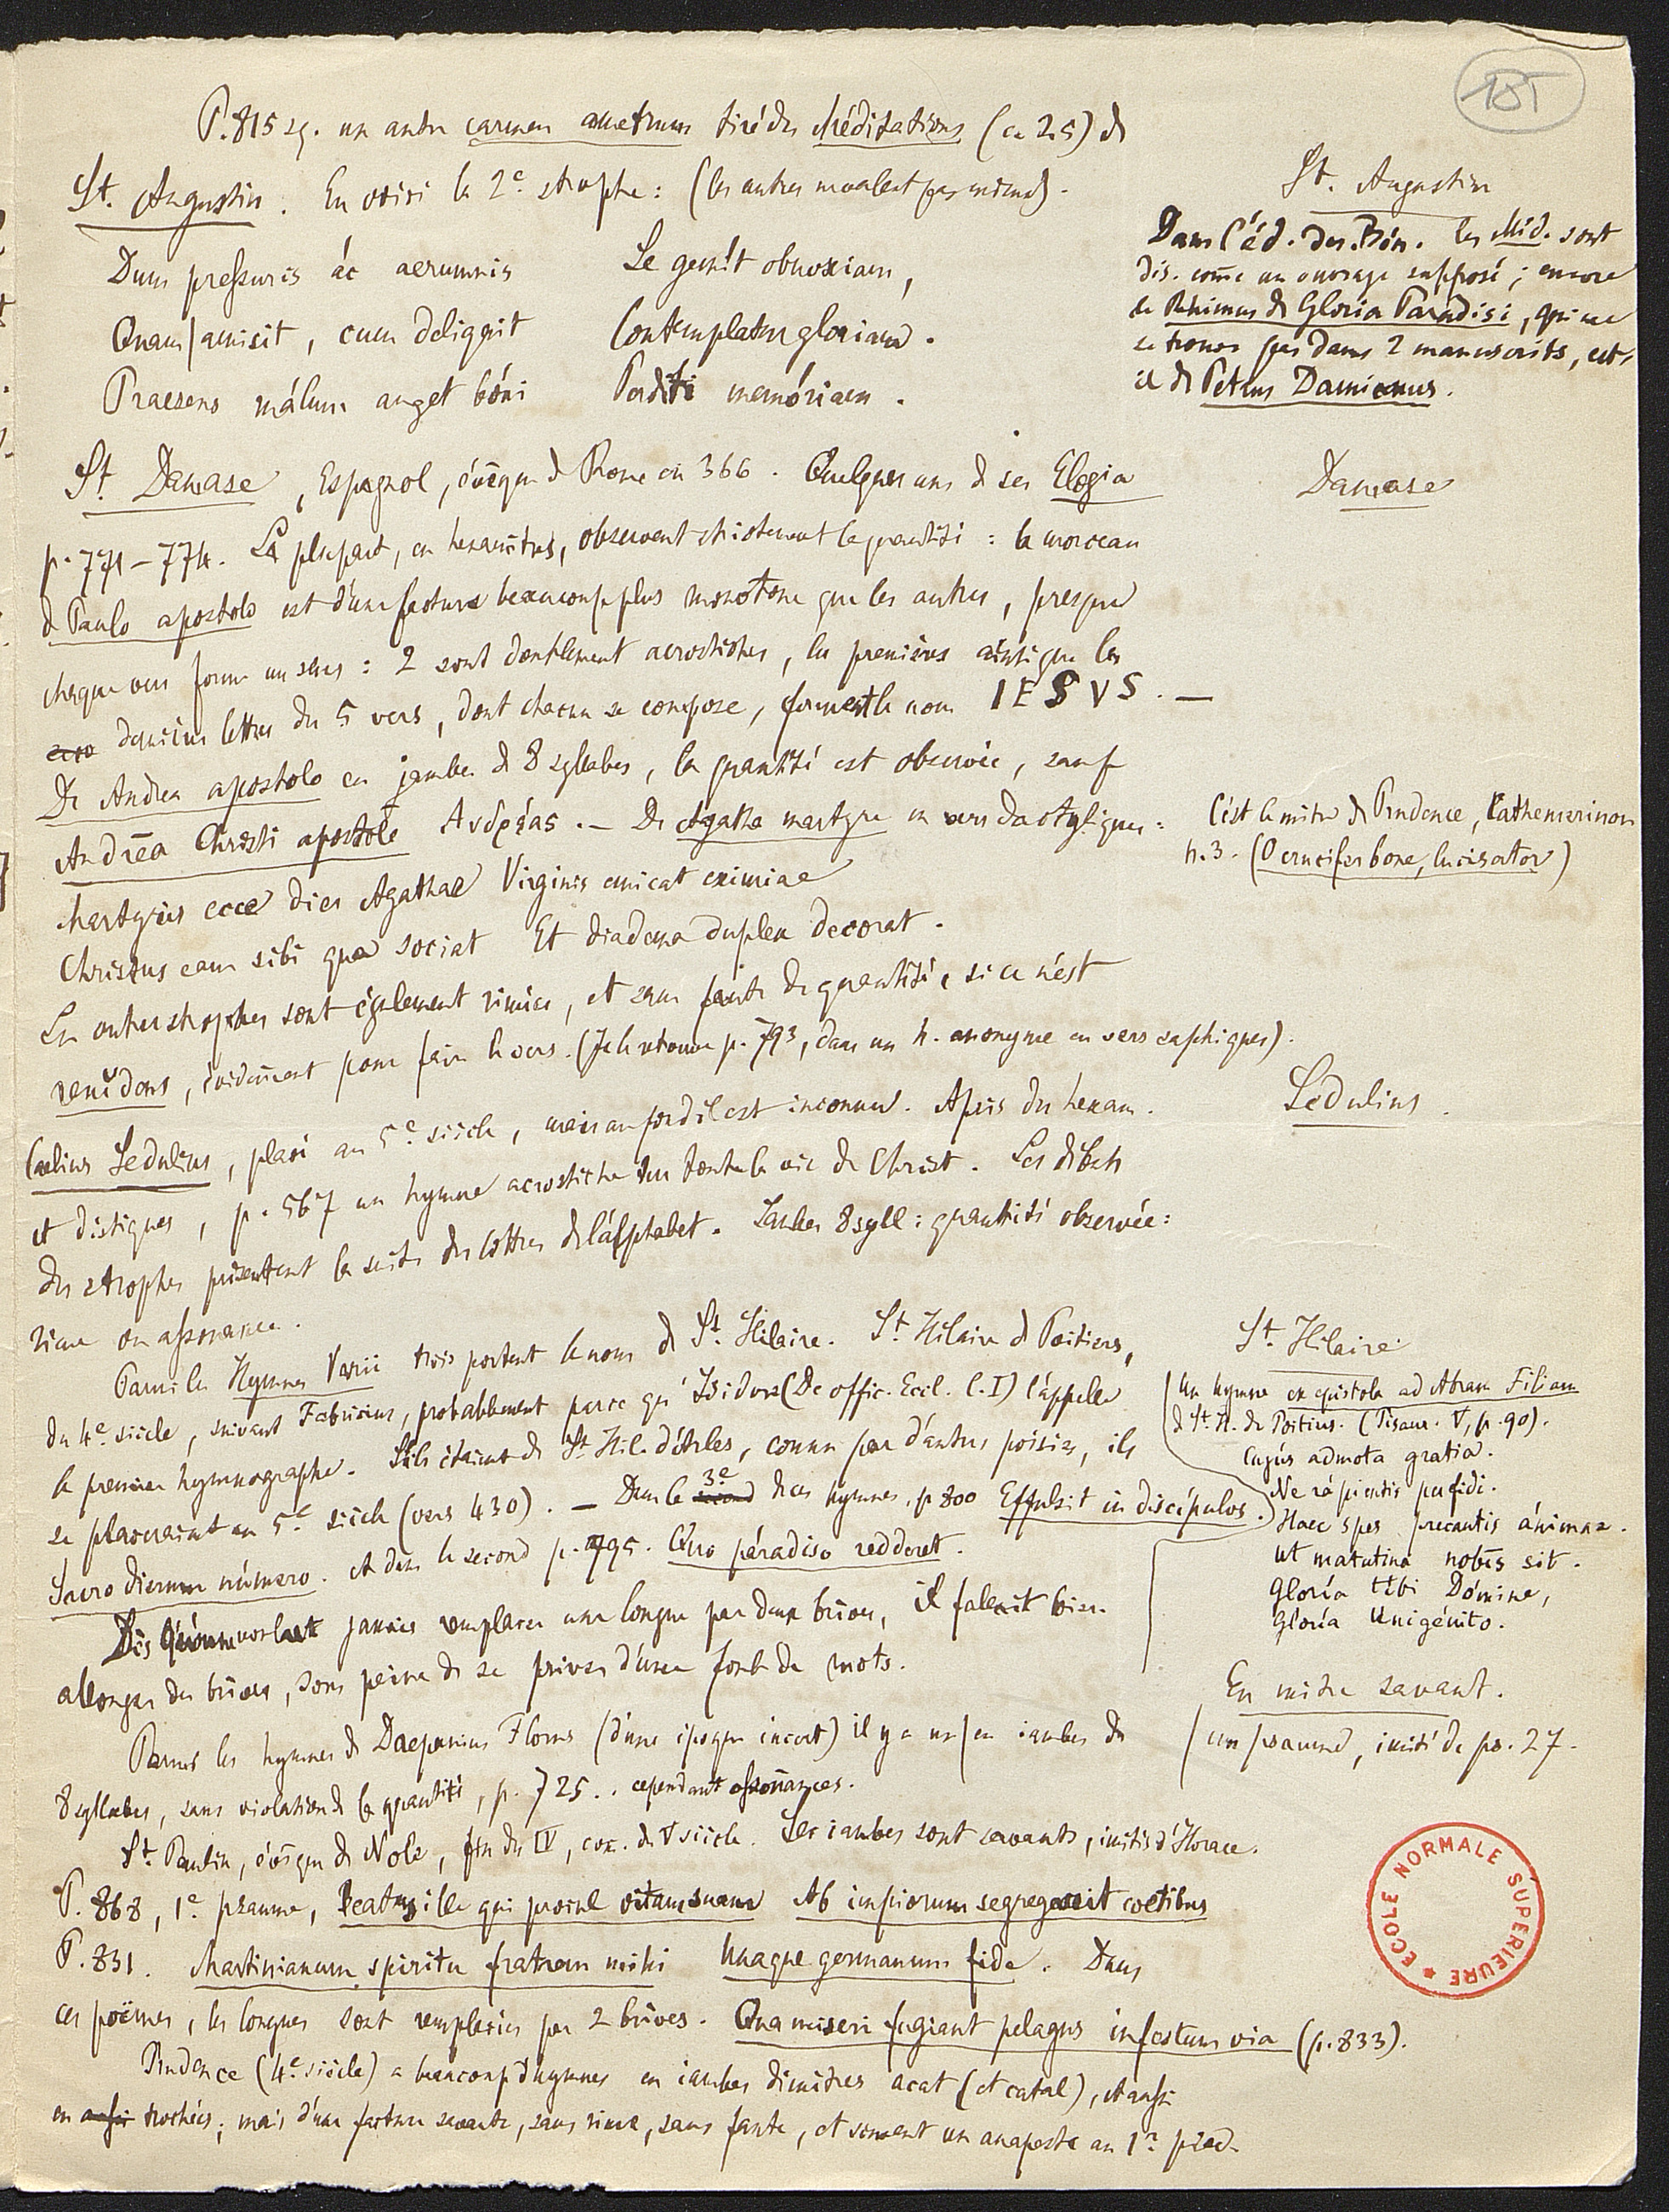 185
P. 815 sq. un autre carmen ametrum tiré des Méditations (c. 25) de
St. Augustin. En voici la 2e strophe : (les autres ne valent pas mieux).
Dum pressuris ác aerumnis Se gemít obnoxiam,
Quam amisit, cum deliquit Contemplatur gloriam.
Praesens málum auget bóni Perditi memóriam.
St. Augustin
Dans l'éd. des Bén. les Méd. sont
dis. come un ouvrage supposé ; encore
le Rhimus de Gloria Paradisi, qui ne
se trouve pas dans 2 manuscrits, est-
il de Petrus Damianus.
St. Damase, Espagnol, évêque de Rome en 366. Quelques uns de ses Elogia
p. 771-774. La plupart, en hexamètres, observent strictement la quantité : le morceau
de Paulo apostolo est d'une facture beaucoup plus monotone que les autres, presque
chaque vers forme un sens : 2 sont doublement acrostiches, les premières ainsi que les
dernières lettres des 5 vers, dont chacun se compose, forment le nom IESVS. —
De Andrea apostolo en jambes de 8 syllabes, la quantité est observée, sauf
Andrēa Christi apostole Ἀνδρέας. — De Agatha martyre en vers dactyliques :
Martyris ecce dies Agathae Virginis emicat eximiae
Christus eam sibi qua sociat Et diadema duplex decorat.
Les autres strophes sont également rimées, et sans faute de quantité, si ce n'est
renidens, évidemment pour faire le vers. (Je le retrouve p. 793, dans un h. anonyme en vers saphiques).
Damase
C'est le mètre de Prudence, Cathemerinon
h. 3. (O crucifer bone, lucisator)
Caelius Sedulius, placé au 5e siècle, mais au fond il est inconnu. Après des hexam.
et distiques, p. 567 un hymne acrostiche sur toute la vie de Christ. Les débuts
des strophes présentent la suite des lettres de l'alphabet. Iambes 8 syll : quantité observée :
rime ou assonance.
Sedulius.
Parmi les Hymni Varii trois portent le nom de St. Hilaire. St. Hilaire de Poitiers,
du 4e siècle, suivant Fabricius, probablement parce qu'Isidore (De offic. Eccl. l. I) l'appelle
le premier hymnographe. S'ils étaient de St. Hil. d'Arles, connu par d'autres poésies, ils
se placeraient au 5e siècle (vers 430). — Dans le 3e de ces hymnes, p. 800 Effulsit in discípulos.
Sacro dierum número. et dans le second p. 795. Quo páradiso redderet.
Dès qu'on ne voulait jamais remplacer une longue par deux brèves, il fallait bien
allonger des brèves, sous peine de se priver d'une foule de mots.
St. Hilaire
Un hymne ex epistola ad Abram Filiam
de St. H. de Poitiers. (Pisaur. V, p. 90).
Cujús admota gratia.
Ne rápientis perfidi.
Haec spes precantis ánimae.
ut matutina nobis sit.
Gloría tibi Dómine,
Gloría Unigénito.
Parmi les hymnes de Drepanius Florus (d'une époque incert) il y a un en iambes de
8 syllabes, sans violation de la quantité, p. 725.. cependant assonances.
St. Paulin, évêque de Nole, fin du IV, com. du V siècle. Ses iambes sont savants, imités d'Horace.
P. 868, 1e psaume, Beatus ille qui procul vitam suam Ab impiorum segregavit coetibus
P. 831. Martinianum spiritu fratrem mihi Unaque germanum fide. Dans
ces poëmes, les longues sont remplacées par 2 brèves. Qua miseri fugiant pelagus infestum via (p. 833).
Prudence (4e siècle) a beaucoup d'hymnes en iambes dimètres acat (et catal), et aussi
en trochées ; mais d'une facture savante, sans rime, sans faute, et souvent un anapeste au 1er pied.
En mètre savant.
un psaume, imité de ps. 27.
ECOLE NORMALE SUPERIEURE